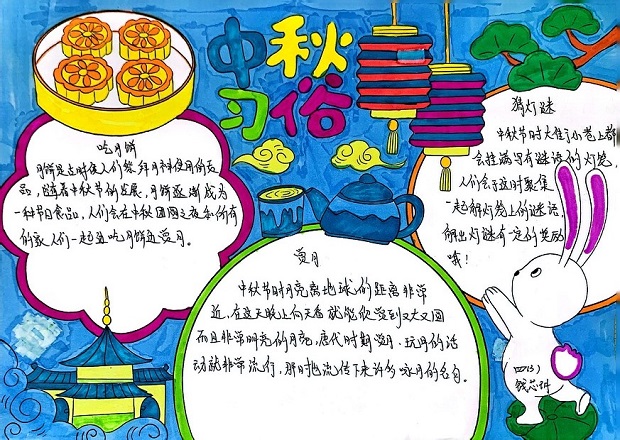 中秋
习俗
吃月饼
月饼是古时候人们祭拜月神使用的贡
品,随着中秋节的发展,月饼逐渐成为
一种节日食品,人们会在中秋团圆之夜和所有
的家人们一起吃月饼边赏月。
猜灯谜
中秋节时大街小巷上都
会挂满写有谜语的灯笼,
人们会在这时聚集
一起解灯笼上的谜语,
解出灯谜有一定的奖励
哦!
赏月
中秋节时月亮离地球的距离非常
近,在这天晚上向天看就能欣赏到又大又圆
而且非常明亮的月亮,唐代时期赏月、玩月的活
动就非常流行,那时也流传下来许多咏月的名句。
四(5)
钱芯